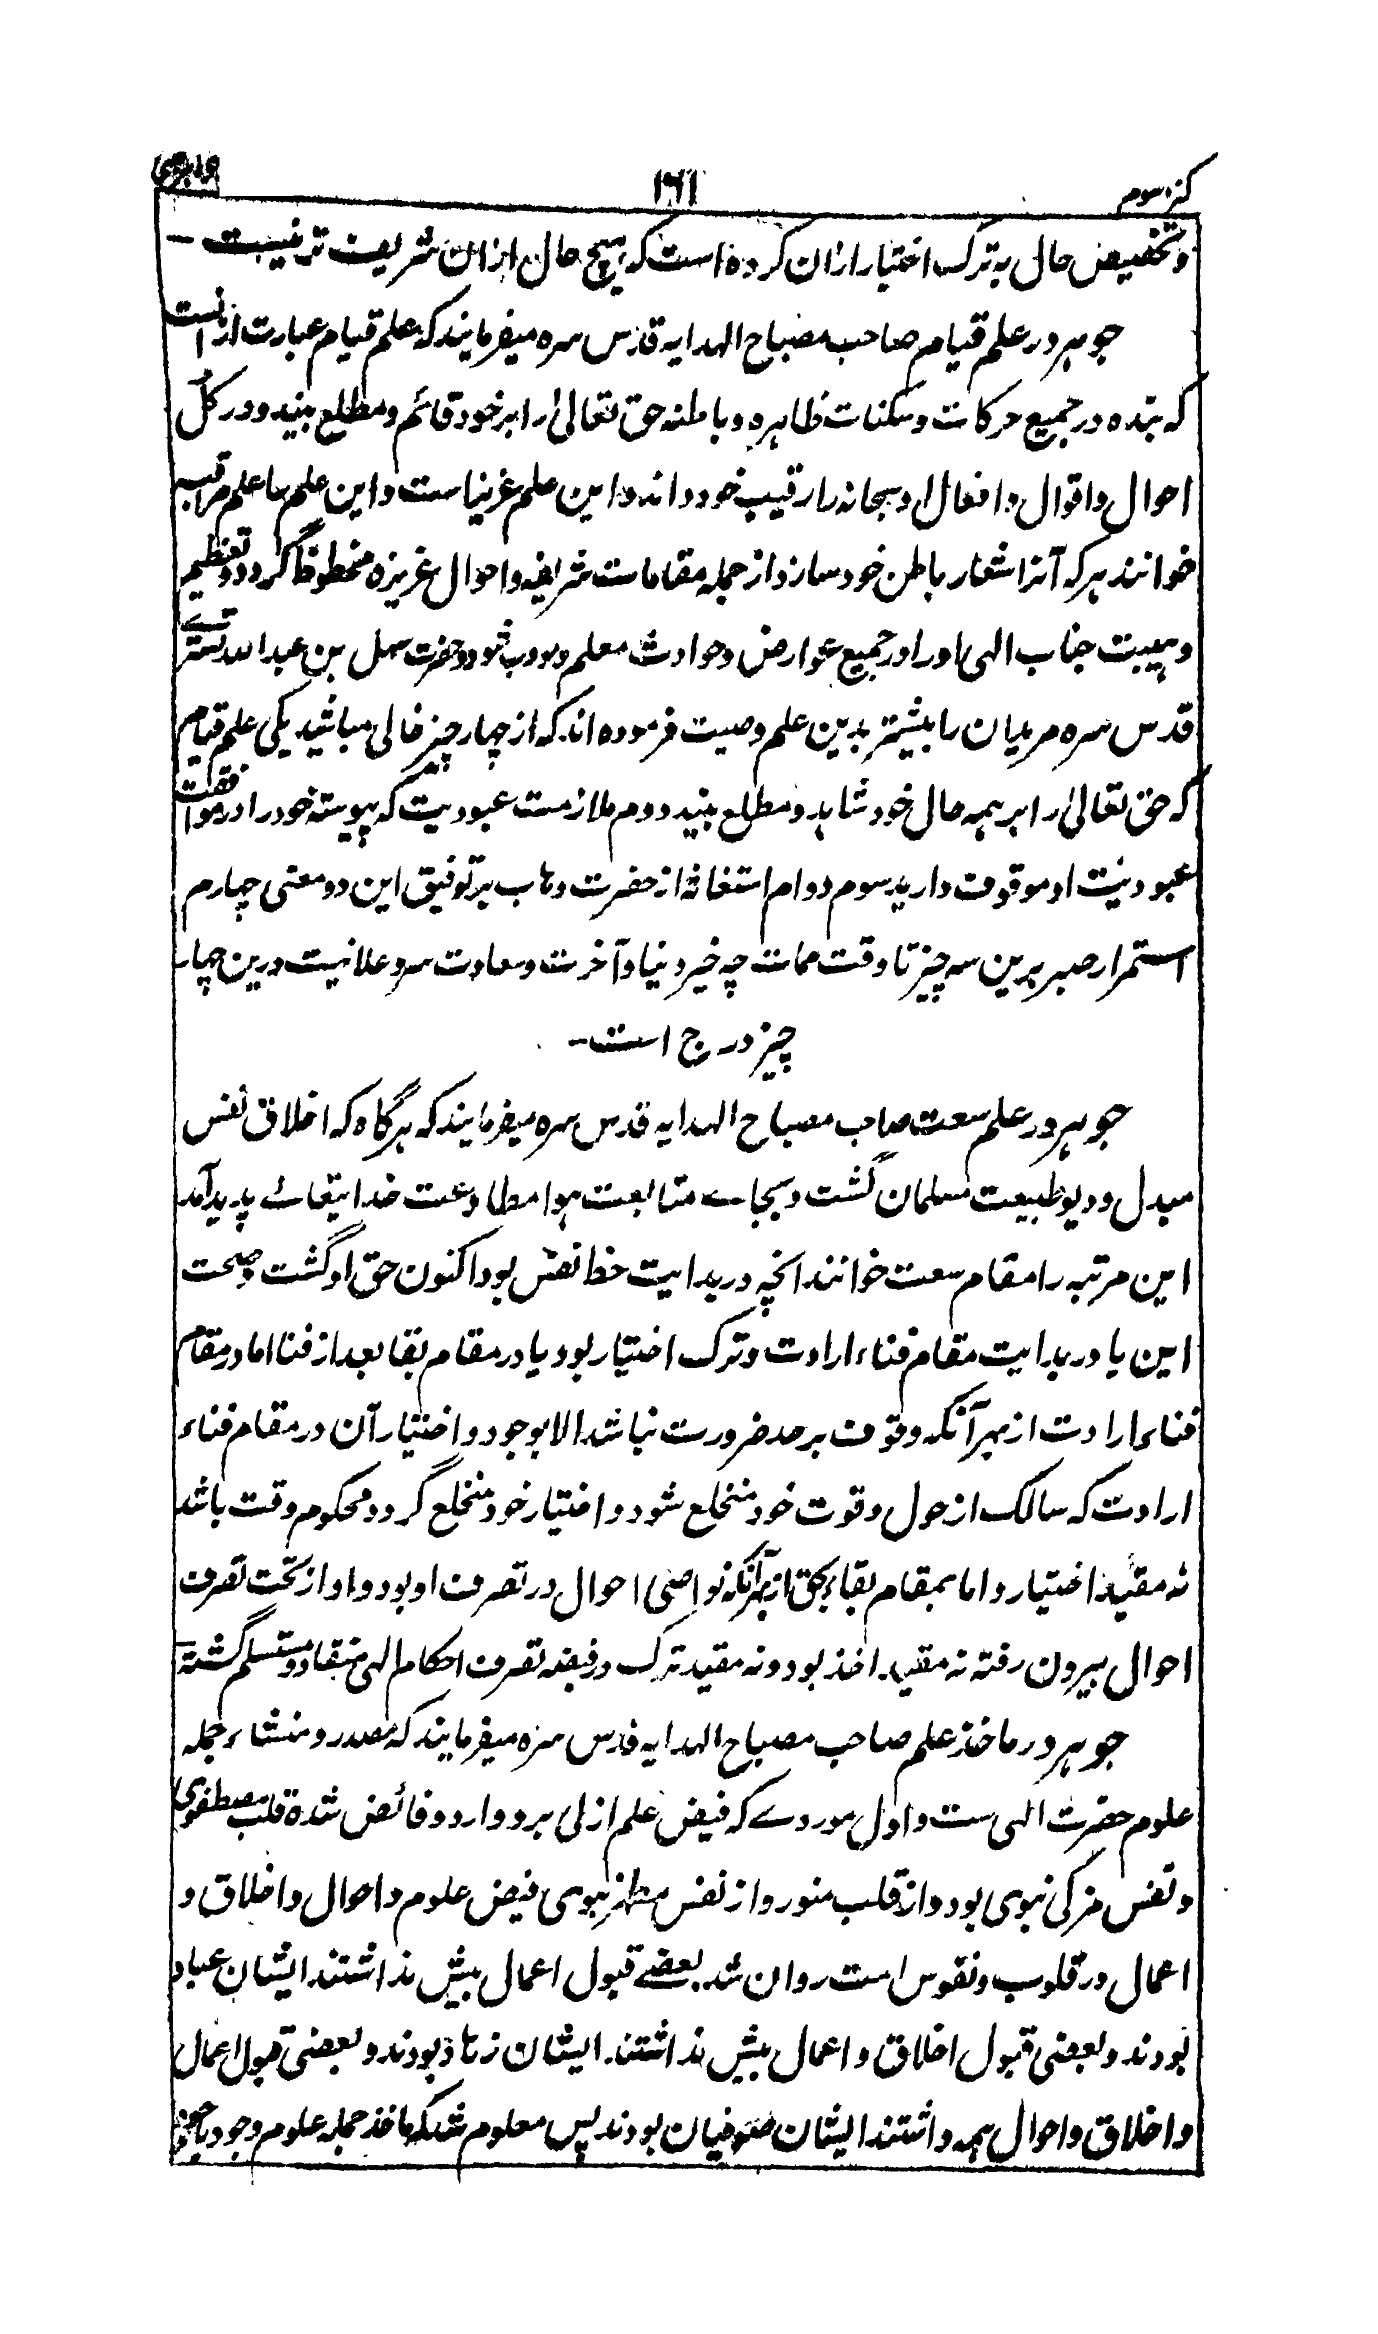 کنز سوم ۱۶۱
وتخصیص حال به ترک اختیار ازان کرده است که هیچ حال ازان شریف تر نیست –
جوهر در علم قیام صاحب مصباح الهدایه قدس سره میفرمایند که علم قیام عبارت از آنست
که بنده در جمیع حرکات و سکنات ظاهره و باطنه حق تعالیٰ را بر خود قائم و مطلع بیند و در کل
احوال و اقوال و افعال او سبحانه را رقیب خود داند و این علم عزیز است و این علم را علم مراقبه
خوانند هر که آنرا شعار باطن خود سازد از جمله مقامات شریفه و احوال عزیزه محظوظ گردد و تعظیم
و هیبت جناب الهی او را در جمیع عوارض و حوادث معلم و مودب شود و حضرت سهل بن عبدالله تستری
قدس سره مریدان را بیشتر بدین علم وصیت فرموده اند که از چهار چیز خالی مباشید یکی علم قیام
که حق تعالیٰ را بر همه حال خود شاهد و مطلع بیند دوم ملازمت عبودیت که پیوسته خود را در موافقت
عبودیت او موقوف دارید سوم دوام استغاثه از حضرت وهاب بر توفیق این دو معنی چهارم
استمرار صبر برین سه چیز تا وقت ممات چه خیر دنیا و آخرت و سعادت سر و علانیت درین چهار
چیز درج است–
جوهر در علم سعت صاحب مصباح الهدایه قدس سره میفرمایند که هرگاه که اخلاق نفس
مبدل و دیو طبیعت مسلمان گشت و بجاے متابعت هوا مطاوعت خدایتعالے پدید آمد
این مرتبه را مقام سعت خوانند انچه در بدایت حظ نفس بود اکنون حق او گشت و صحت
این یا در بدایت مقام فناء ارادت و ترک اختیار بود یا در مقام بقا بعد از فنا اما در مقام
فناء ارادت از بهر آنکه وقوف بر حد ضرورت نباشد الا بوجود و اختیار آن در مقام فناء
ارادت که سالک از حول و قوت خود منخلع شود و اختیار خود منخلع گردد محکوم وقت باشد
نه مقید اختیار و اما بمقام بقاء بحق از بهر آنکه نواصی احوال در تصرف او بود و او از تحت تصرف
احوال بیرون رفته نه مقید اخذ بود و نه مقید ترک در قبضه تصرف احکام الهی منقاد و مستسلم گشته
جوهر در ماخذ علم صاحب مصباح الهدایه قدس سره میفرمایند که مصدر و منشاء جمله
علوم حضرت الهی ست و اول موردے که فیض علم ازلی برو وارد و فائض شده قلب مصطفوی
و نفس مزکی نبوی بود و از قلب منور و از نفس مطهر نبوی فیض علوم و احوال و اخلاق و
اعمال در قلوب و نفوس امت روان شد بعضے قبول اعمال بیش نداشتند ایشان عباد
بودند و بعضی قبول اخلاق و اعمال بیش نداشتند. ایشان زهاد بودند و بعضی قبول اعمال
و اخلاق و احوال همه داشتند ایشان صوفیان بودند پس معلوم شد که ماخذ جمله علوم وجود